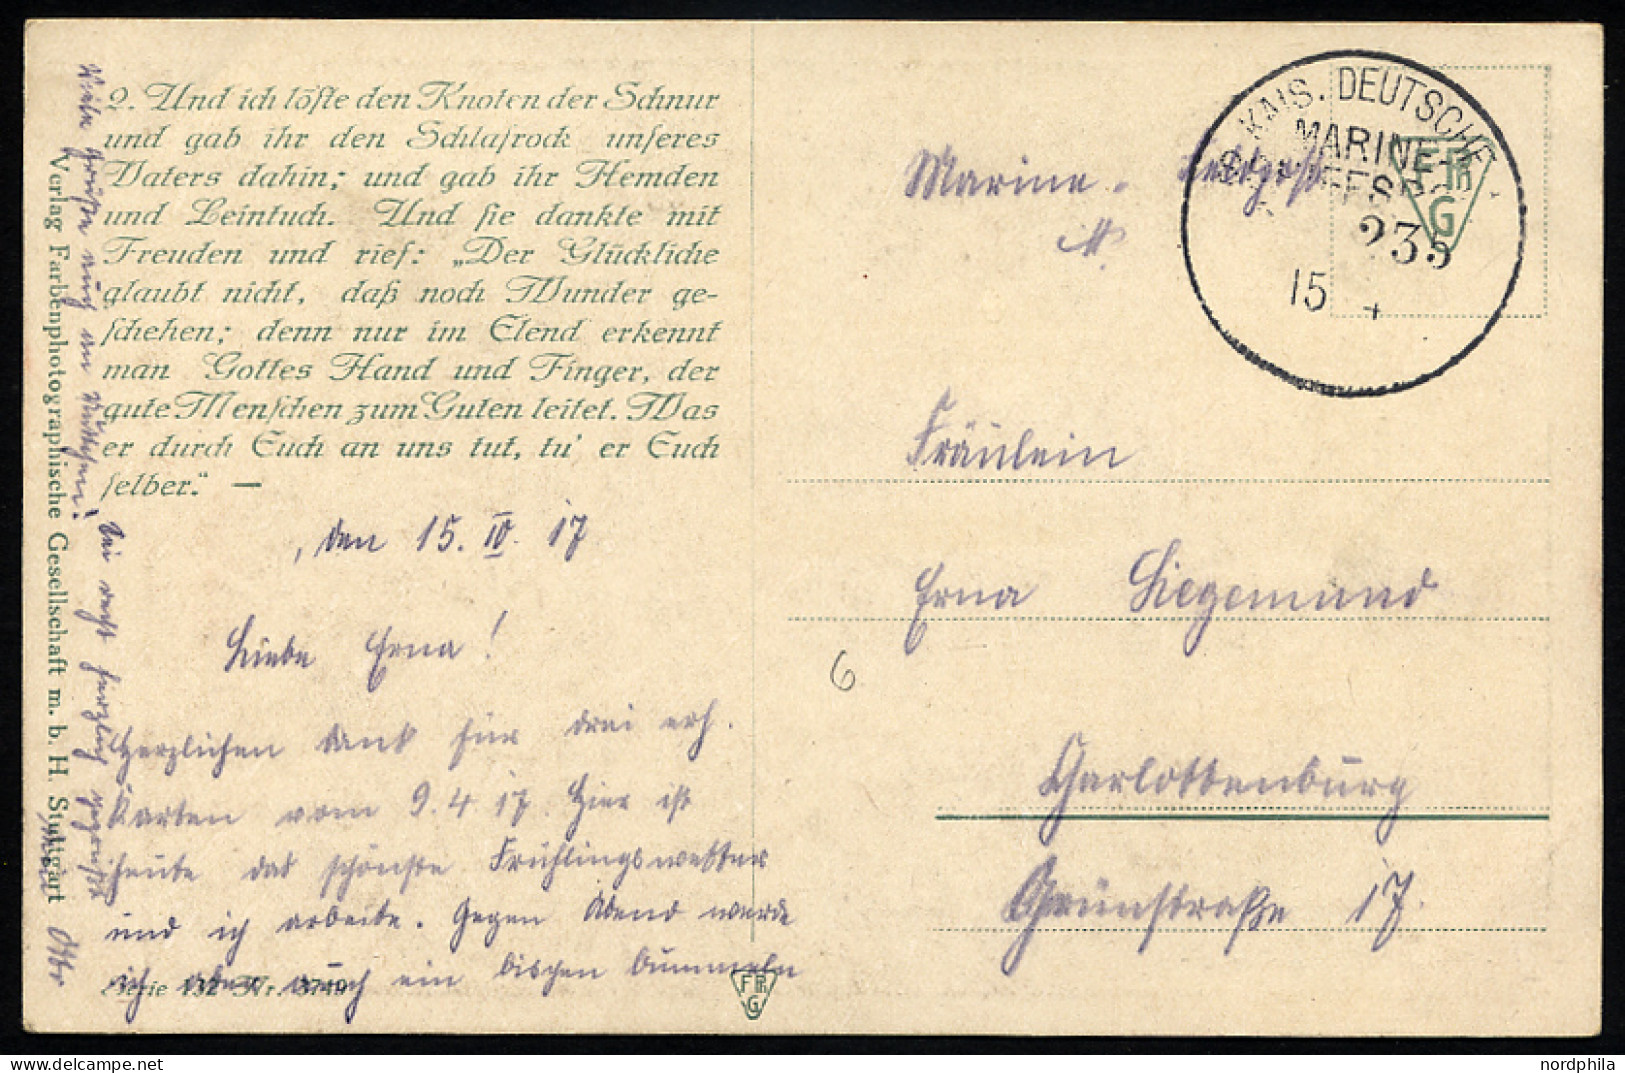 2. Und ich löste den Knoten der Schnur
und gab ihr den Schlafrock unseres
Vaters dahin; und gab ihr Hemden
und Leintuch. Und sie dankte mit
Freuden und rief: „Der Glückliche
glaubt nicht, daß noch Wunder ge-
schehen; denn nur im Elend erkennt
man Gottes Hand und Finger, der
gute Menschen zum Guten leitet. Was
er durch Euch an uns tut, tu' er Euch
selber.“ —
, den 15. IV. 17
Liebe Erna!
Herzlichen Dank für drei erh.
Karten vom 9.4.17. Hier ist
heute das schönste Frühlingswetter
und ich arbeite. Gegen Abend werde
ich aber auch ein bischen bummeln
Viele Grüße auch an
Sei recht herzlich gegrüßt
Otto
Verlag Farbenphotographische Gesellschaft m. b. H. Stuttgart
Serie 132 Nr. 3749
FPhG
Marine-Feldpost
KAIS. DEUTSCHE
MARINE-
SCHIFFSPOST
No 235
15 4
FPhG
Fräulein
Erna Siegemund
6
Charlottenburg
Grünstraße 17.
nordphila